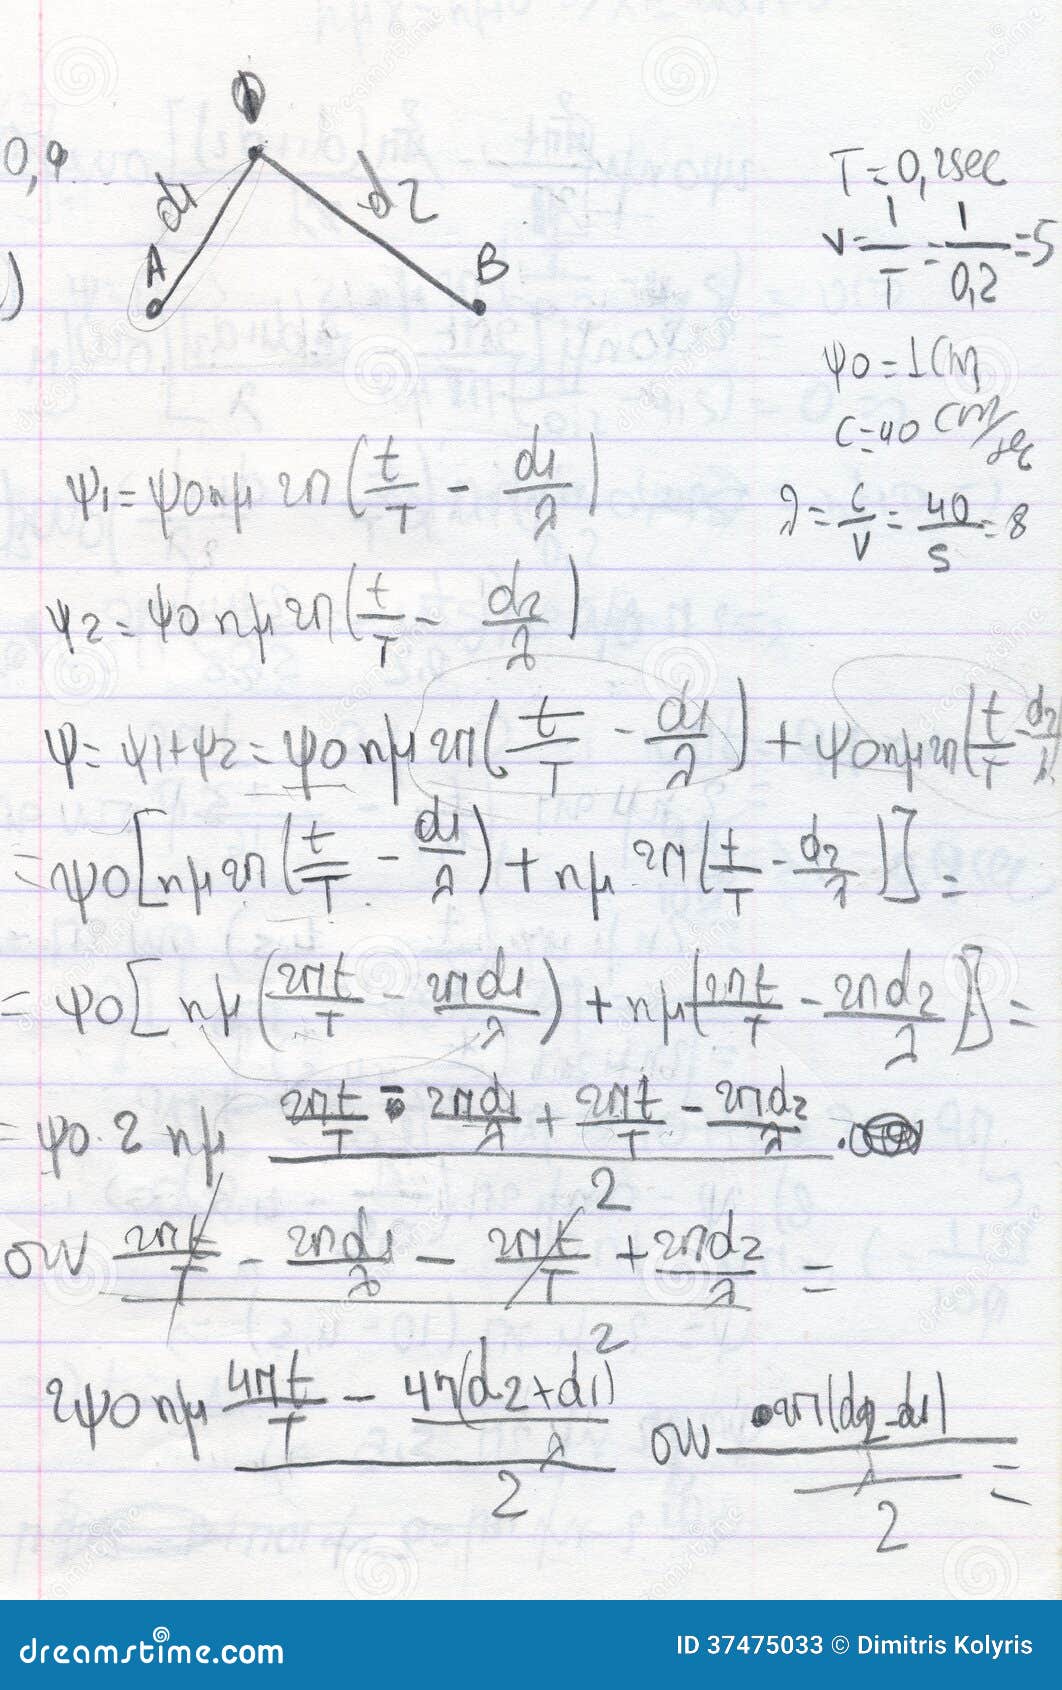 0,9
d1
d2
A
B
T=0,2sec
ν=1/T=1/0,2=5
ψ0=1cm
c=40 cm/sec
λ=c/ν=40/5=8
ψ1=ψ0ημ2π(t/T - d1/λ)
ψ2=ψ0ημ2π(t/T - d2/λ)
ψ=ψ1+ψ2=ψ0ημ2π(t/T - d1/λ)+ψ0ημ2π(t/T - d2/λ
=ψ0[ημ2π(t/T - d1/λ)+ημ2π(t/T - d2/λ)]=
=ψ0[ημ(2πt/T - 2πd1/λ)+ημ(2πt/T - 2πd2/λ)]=
=ψ0·2ημ (2πt/T - 2πd1/λ + 2πt/T - 2πd2/λ)/2 ·
συν (2πt/T - 2πd1/λ - 2πt/T + 2πd2/λ)/2 =
2ψ0ημ (4πt/T - 4π(d2+d1)/λ)/2 συν (2π(d2-d1)/λ)/2 =
dreamstime.com
ID 37475033 © Dimitris Kolyris